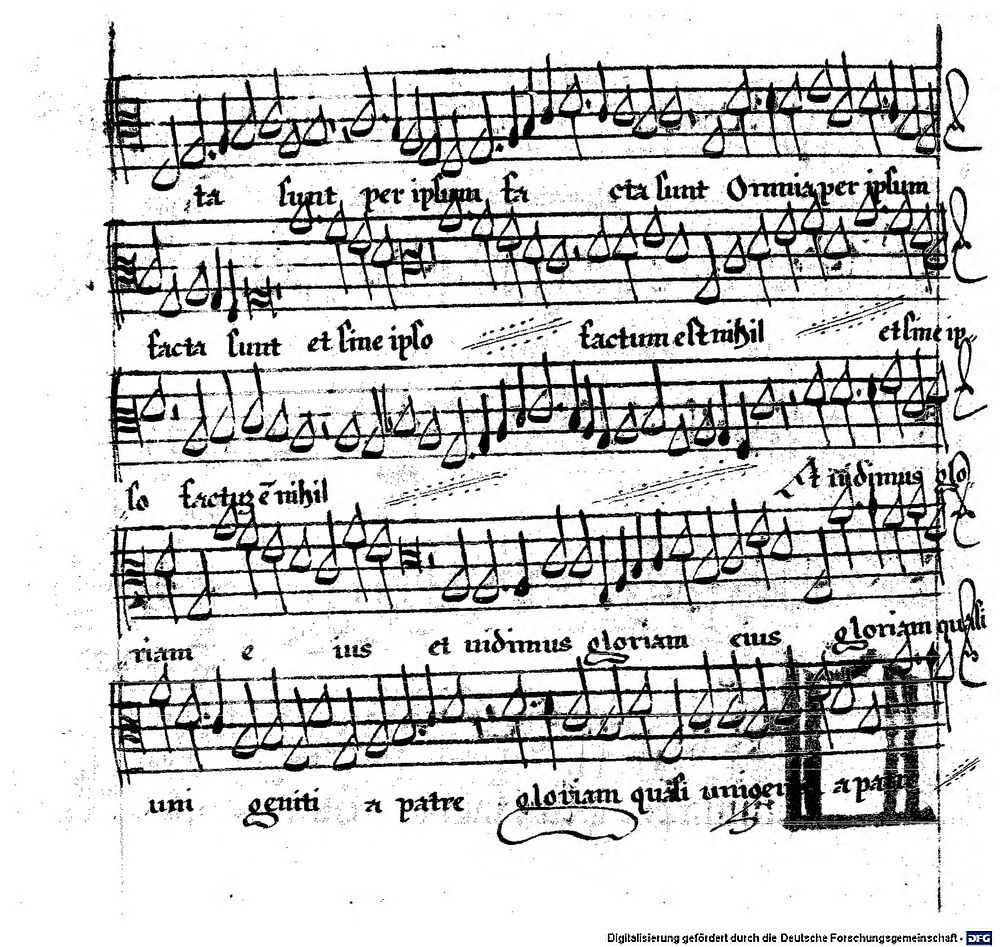 ta sunt per ipsum fa cta sunt Omnia per ipsum
facta sunt et sine ipso factum est nihil et sine ip
so factuʒ ē nihil Et uidimus glo
riam e ius et uidimus gloriam eius gloriam quasi
uni geniti a patre gloriam quasi a
Digitalisierung gefördert durch die Deutsche Forschungsgemeinschaft - DFG